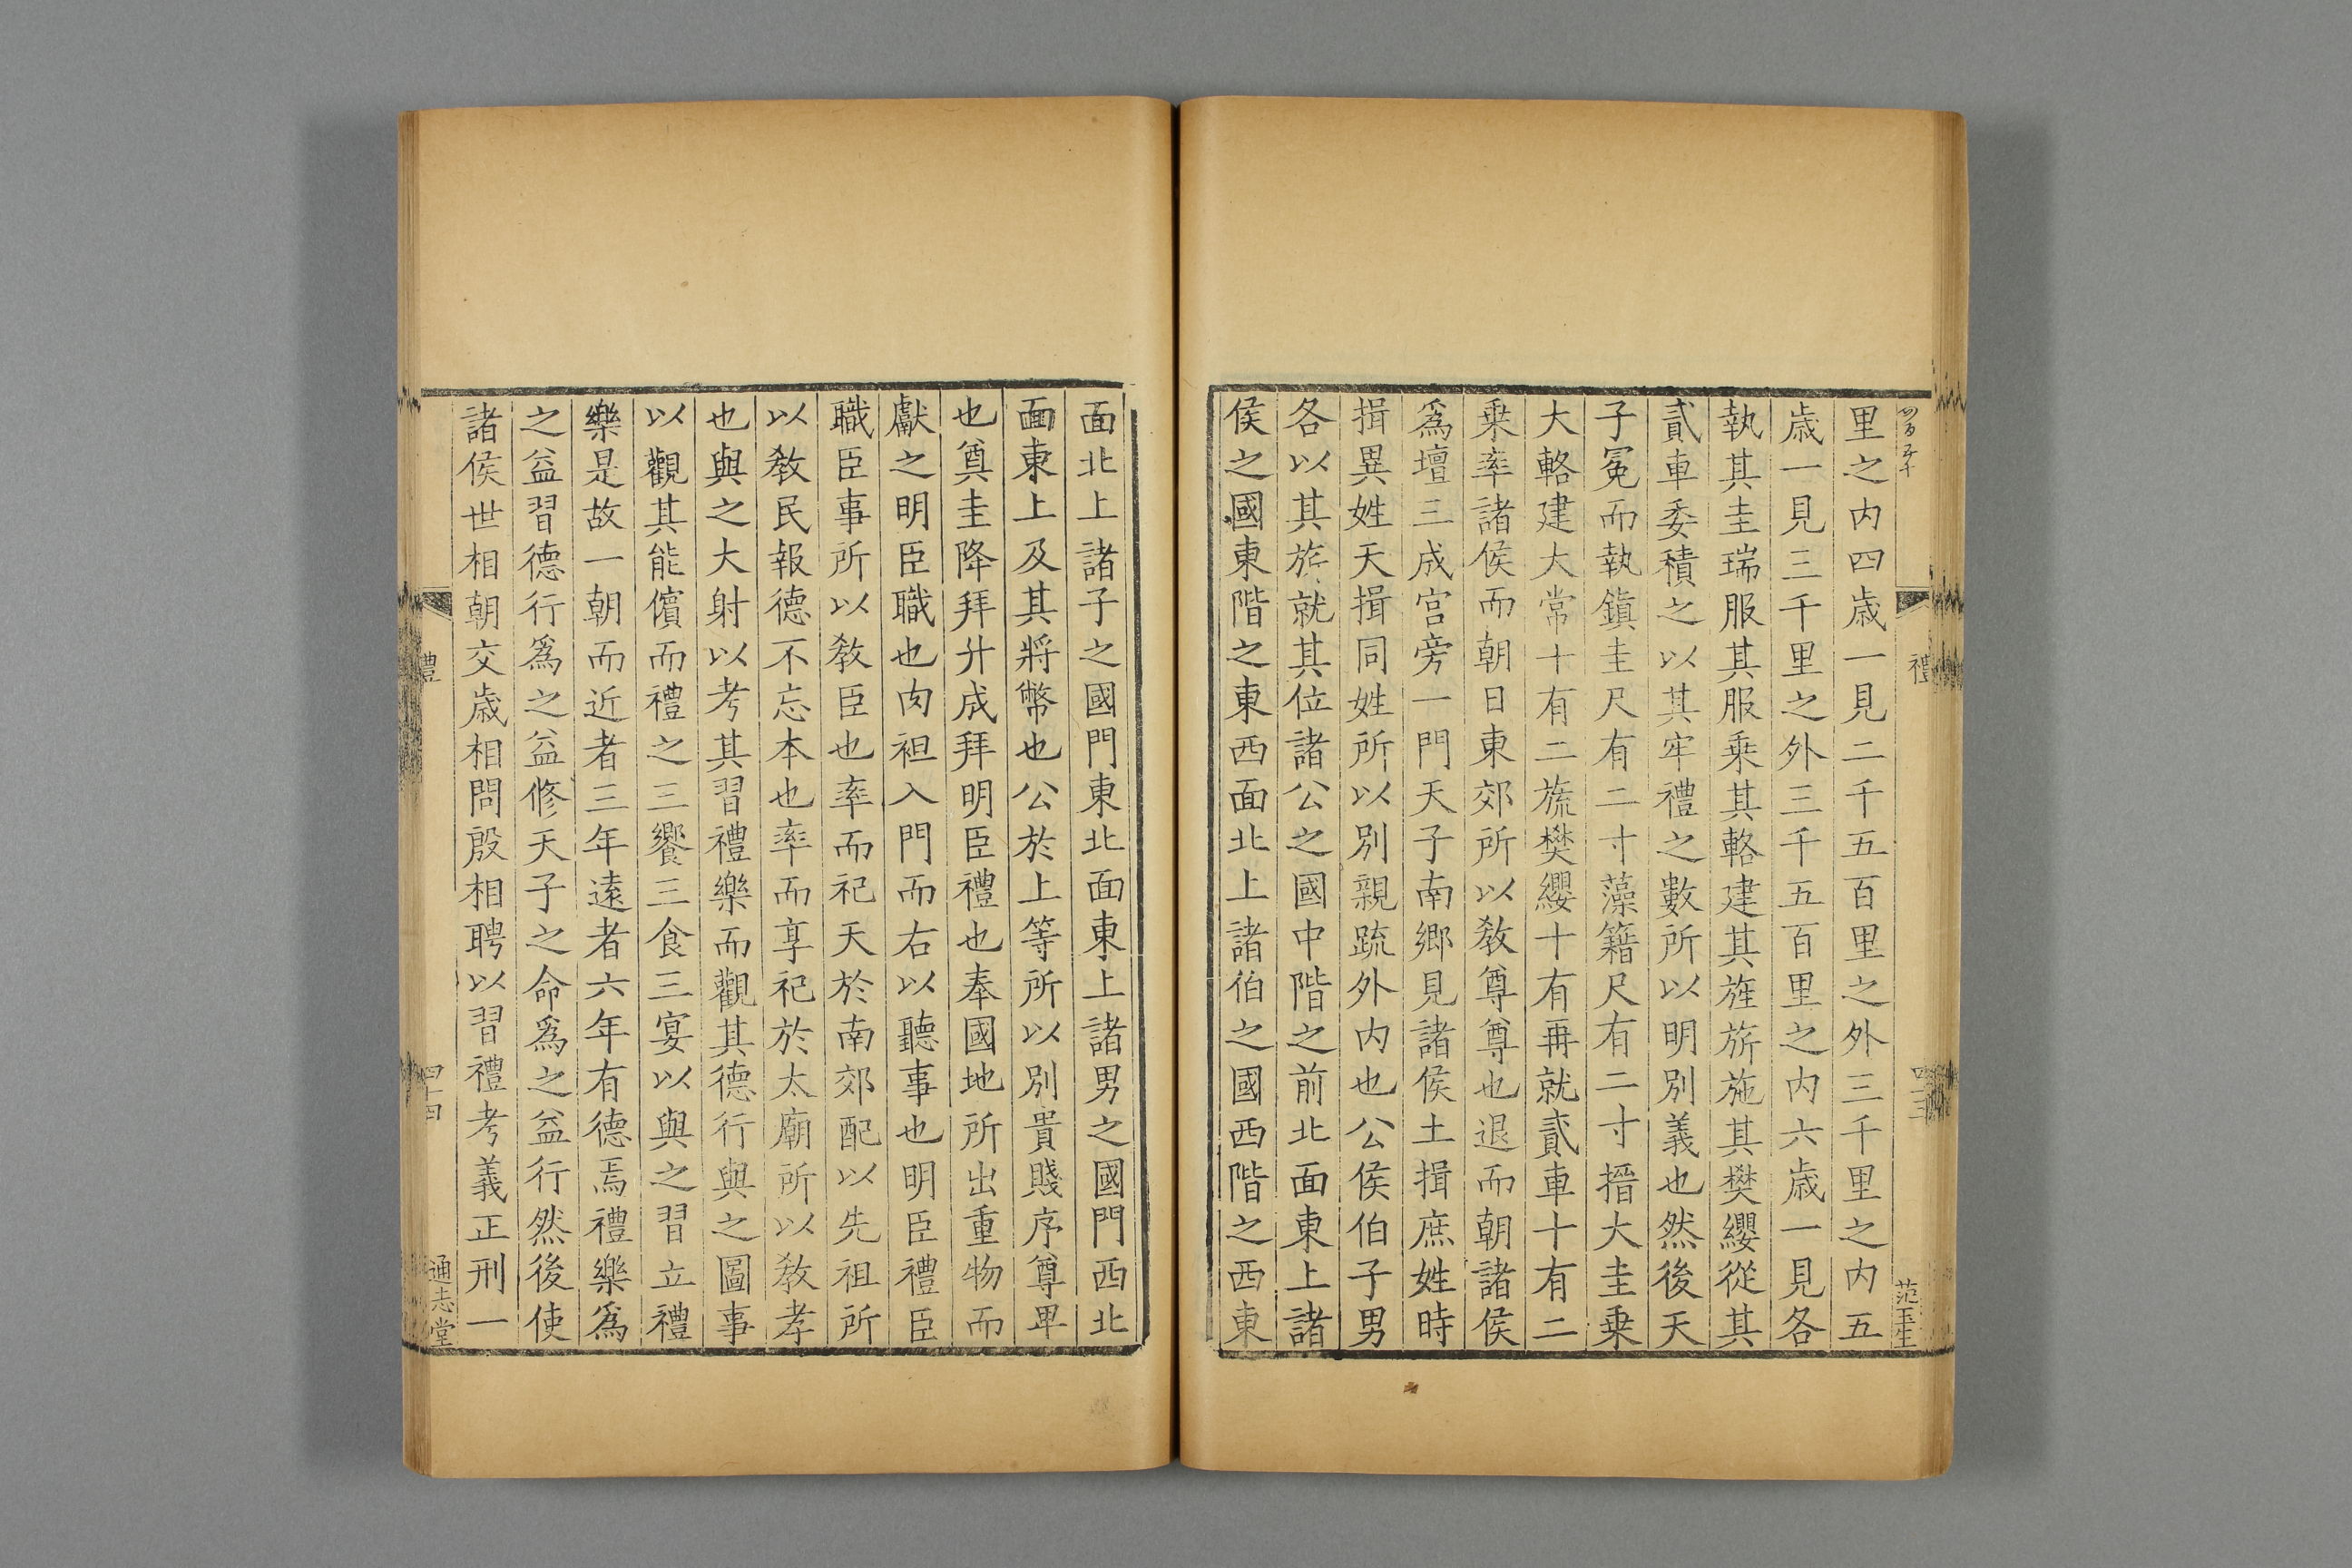 里之内四歳一見二千五百里之外三千里之内五
歳一見三千里之外三千五百里之内六歳一見各
執其圭瑞服其服乗其輅建其旌旂施其樊纓從其
貳車委積之以其牢禮之數所以明別義也然後天
子冕而執鎮圭尺有二寸藻籍尺有二寸搢大圭乗
大輅建大常十有二旒樊纓十有再就貳車十有二
乗率諸侯而朝日東郊所以教尊尊也退而朝諸侯
爲壇三成宫旁一門天子南鄉見諸侯土揖庶姓時
揖異姓天揖同姓所以別親疏外内也公侯伯子男
各以其旂就其位諸公之國中階之前北面東上諸
侯之國東階之東西面北上諸伯之國西階之西東
禮
四十三
范玉生
面北上諸子之國門東北面東上諸男之國門西北
面東上及其將幣也公於上等所以別貴賤序尊卑
也奠圭降拜升成拜明臣禮也奉國地所出重物而
獻之明臣職也肉袒入門而右以聽事也明臣禮臣
職臣事所以教臣也率而祀天於南郊配以先祖所
以教民報德不忘本也率而享祀於太廟所以教孝
也與之大射以考其習禮樂而觀其德行與之圖事
以觀其能儐而禮之三饗三食三宴以與之習立禮
樂是故一朝而近者三年遠者六年有德焉禮樂爲
之益習德行爲之益修天子之命爲之益行然後使
諸侯世相朝交歳相問殷相聘以習禮考義正刑一
禮
四十四
通志堂